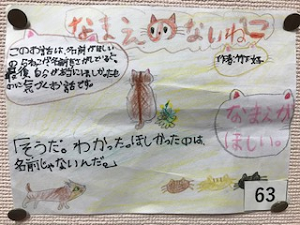 なまえのないねこ
作者:竹下文子
このお話は、名前がほしい
のらねこが名前をさがしている。
最後、自らが本当にほしかったもの
に気づくお話です。
なまえが
ほしい。
「そうだ。わかった。ほしかったのは、
名前じゃないんだ。」
63